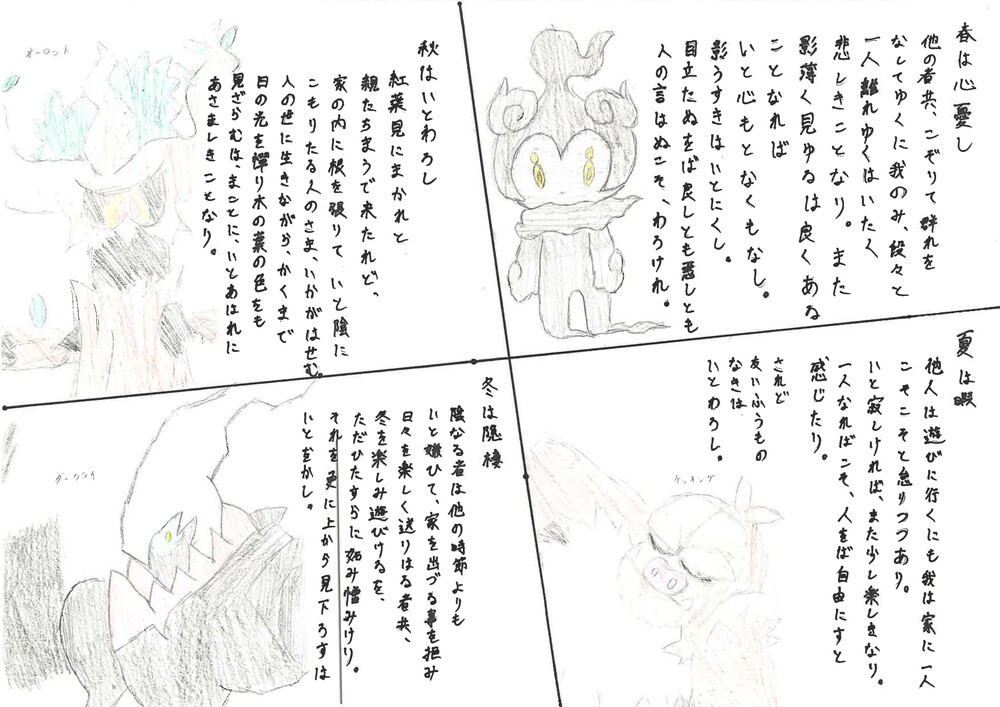 春は心憂し
他の者共、こぞりて群れを
なしてゆくに我のみ、段々と
一人離れゆくはいたく
悲しきことなり。また
影薄く見ゆるは良くある
ことなれば
いと心もとなくもなし。
影うすきはいとにくし。
目立たぬをば良しとも悪しとも
人の言はぬこそ、わろけれ。
夏は暇
他人は遊びに行くにも我は家に一人
こそこそと怠りつつあり。
いと寂しければ、また少し楽しきなり。
一人なればこそ、人をば自由にすと
感じたり。
されど
友いふうもの
なきは
いとわろし。
ケッキング
秋はいとわろし
紅葉見にまかれと
親たちまうで来たれど、
家の内に根を張りて いと陰に
こもりたる人のさま、いかがはせむ。
人の世に生きながら、かくまで
日の光を憚り木の葉の色をも
見ざらむは、まことに、いとあはれに
あさましきことなり。
オーロット
冬は隠棲
陰なる者は他の時節よりも
いと嫌ひて、家を出づる事を拒み
日々を楽しく送りはる者共、
冬を楽しみ遊びけるを、
ただひたすらに妬み憎みけり。
それを更に上から見下ろすは
いとをかし。
ダークライ